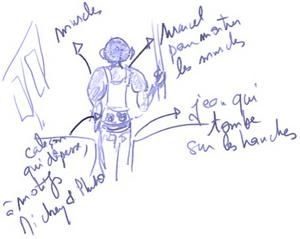 muscles
Marcel
pour montrer
les muscles
caleçon
qui dépasse
à motifs
Mickey & Pluto
jean qui
tombe
sur les hanches